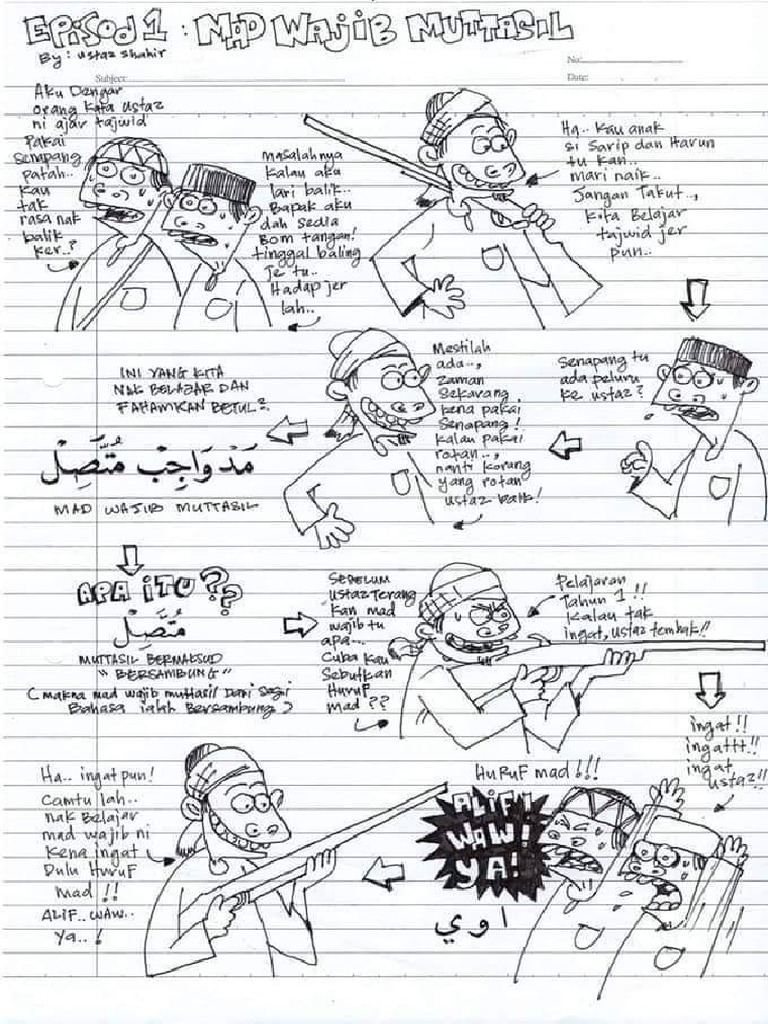 EPISOD 1 : MAD WAJIB MUTTASIL
By : ustaz shahir
No:
Subject
Date:
Aku Dengar
orang kata ustaz
ni ajar tajwid
Pakai
senapang
patah..
kau
tak
rasa nak
balik
ker..?
Masalahnya
kalau aku
lari balik..
Bapak aku
dah sedia
Bom tangan!
tinggal baling
je tu..
Hadap jer
lah..
Ha.. kau anak
si Sarip dan Harun
tu kan..
mari naik..
Jangan Takut..,
kita Belajar
tajwid jer
pun..
Senapang tu
ada peluru
ke ustaz?
Mestilah
ada..,
zaman
sekarang
kena pakai
Senapang!
kalau pakai
rotan..,
nanti korang
yang rotan
ustaz balik!
INI YANG KITA
NAK BELAJAR DAN
FAHAMKAN BETUL2.
مَدْ وَاجِبْ مُتَّصِلْ
MAD WAJIB MUTTASIL
APA ITU ??
مُتَّصِلْ
MUTTASIL BERMAKSUD
"BERSAMBUNG"
(makna mad wajib muttasil Dari segi
Bahasa ialah Bersambung)
SEBELUM
ustaz Terang
kan mad
wajib tu
apa...
Cuba kau
Sebutkan
Huruf
mad ??
Pelajaran
Tahun 1 !!
kalau tak
ingat, ustaz tembak!!
ingat!!
ingattt!!
ingat
ustaz!!
Huruf mad!!!
ALIF!
WAW!
YA!
ا و ي
Ha.. ingat pun!
Camtu lah..
nak Belajar
mad wajib ni
kena ingat
Dulu Huruf
mad !!
ALIF.. WAW..
Ya..!